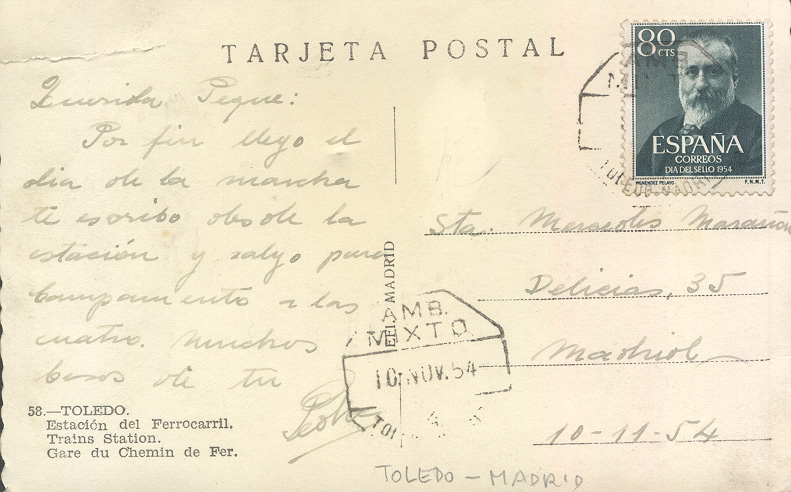 TARJETA POSTAL
80 CTS
ESPAÑA
CORREOS
DIA DEL SELLO 1954
MENENDEZ PELAYO F.N.M.T.
Querida Peque:
Por fin llego el
dia de la marcha
te escribo desde la
estación y salgo para
Campamento a las
cuatro. Muchos
besos de tu
58.—TOLEDO.
Estación del Ferrocarril.
Trains Station.
Gare du Chemin de Fer.
MADRID
AMB.
MIXTO
10 NOV. 54
Sta. Mercedes Marañón
Delicias, 35
Madrid
10-11-54
TOLEDO - MADRID